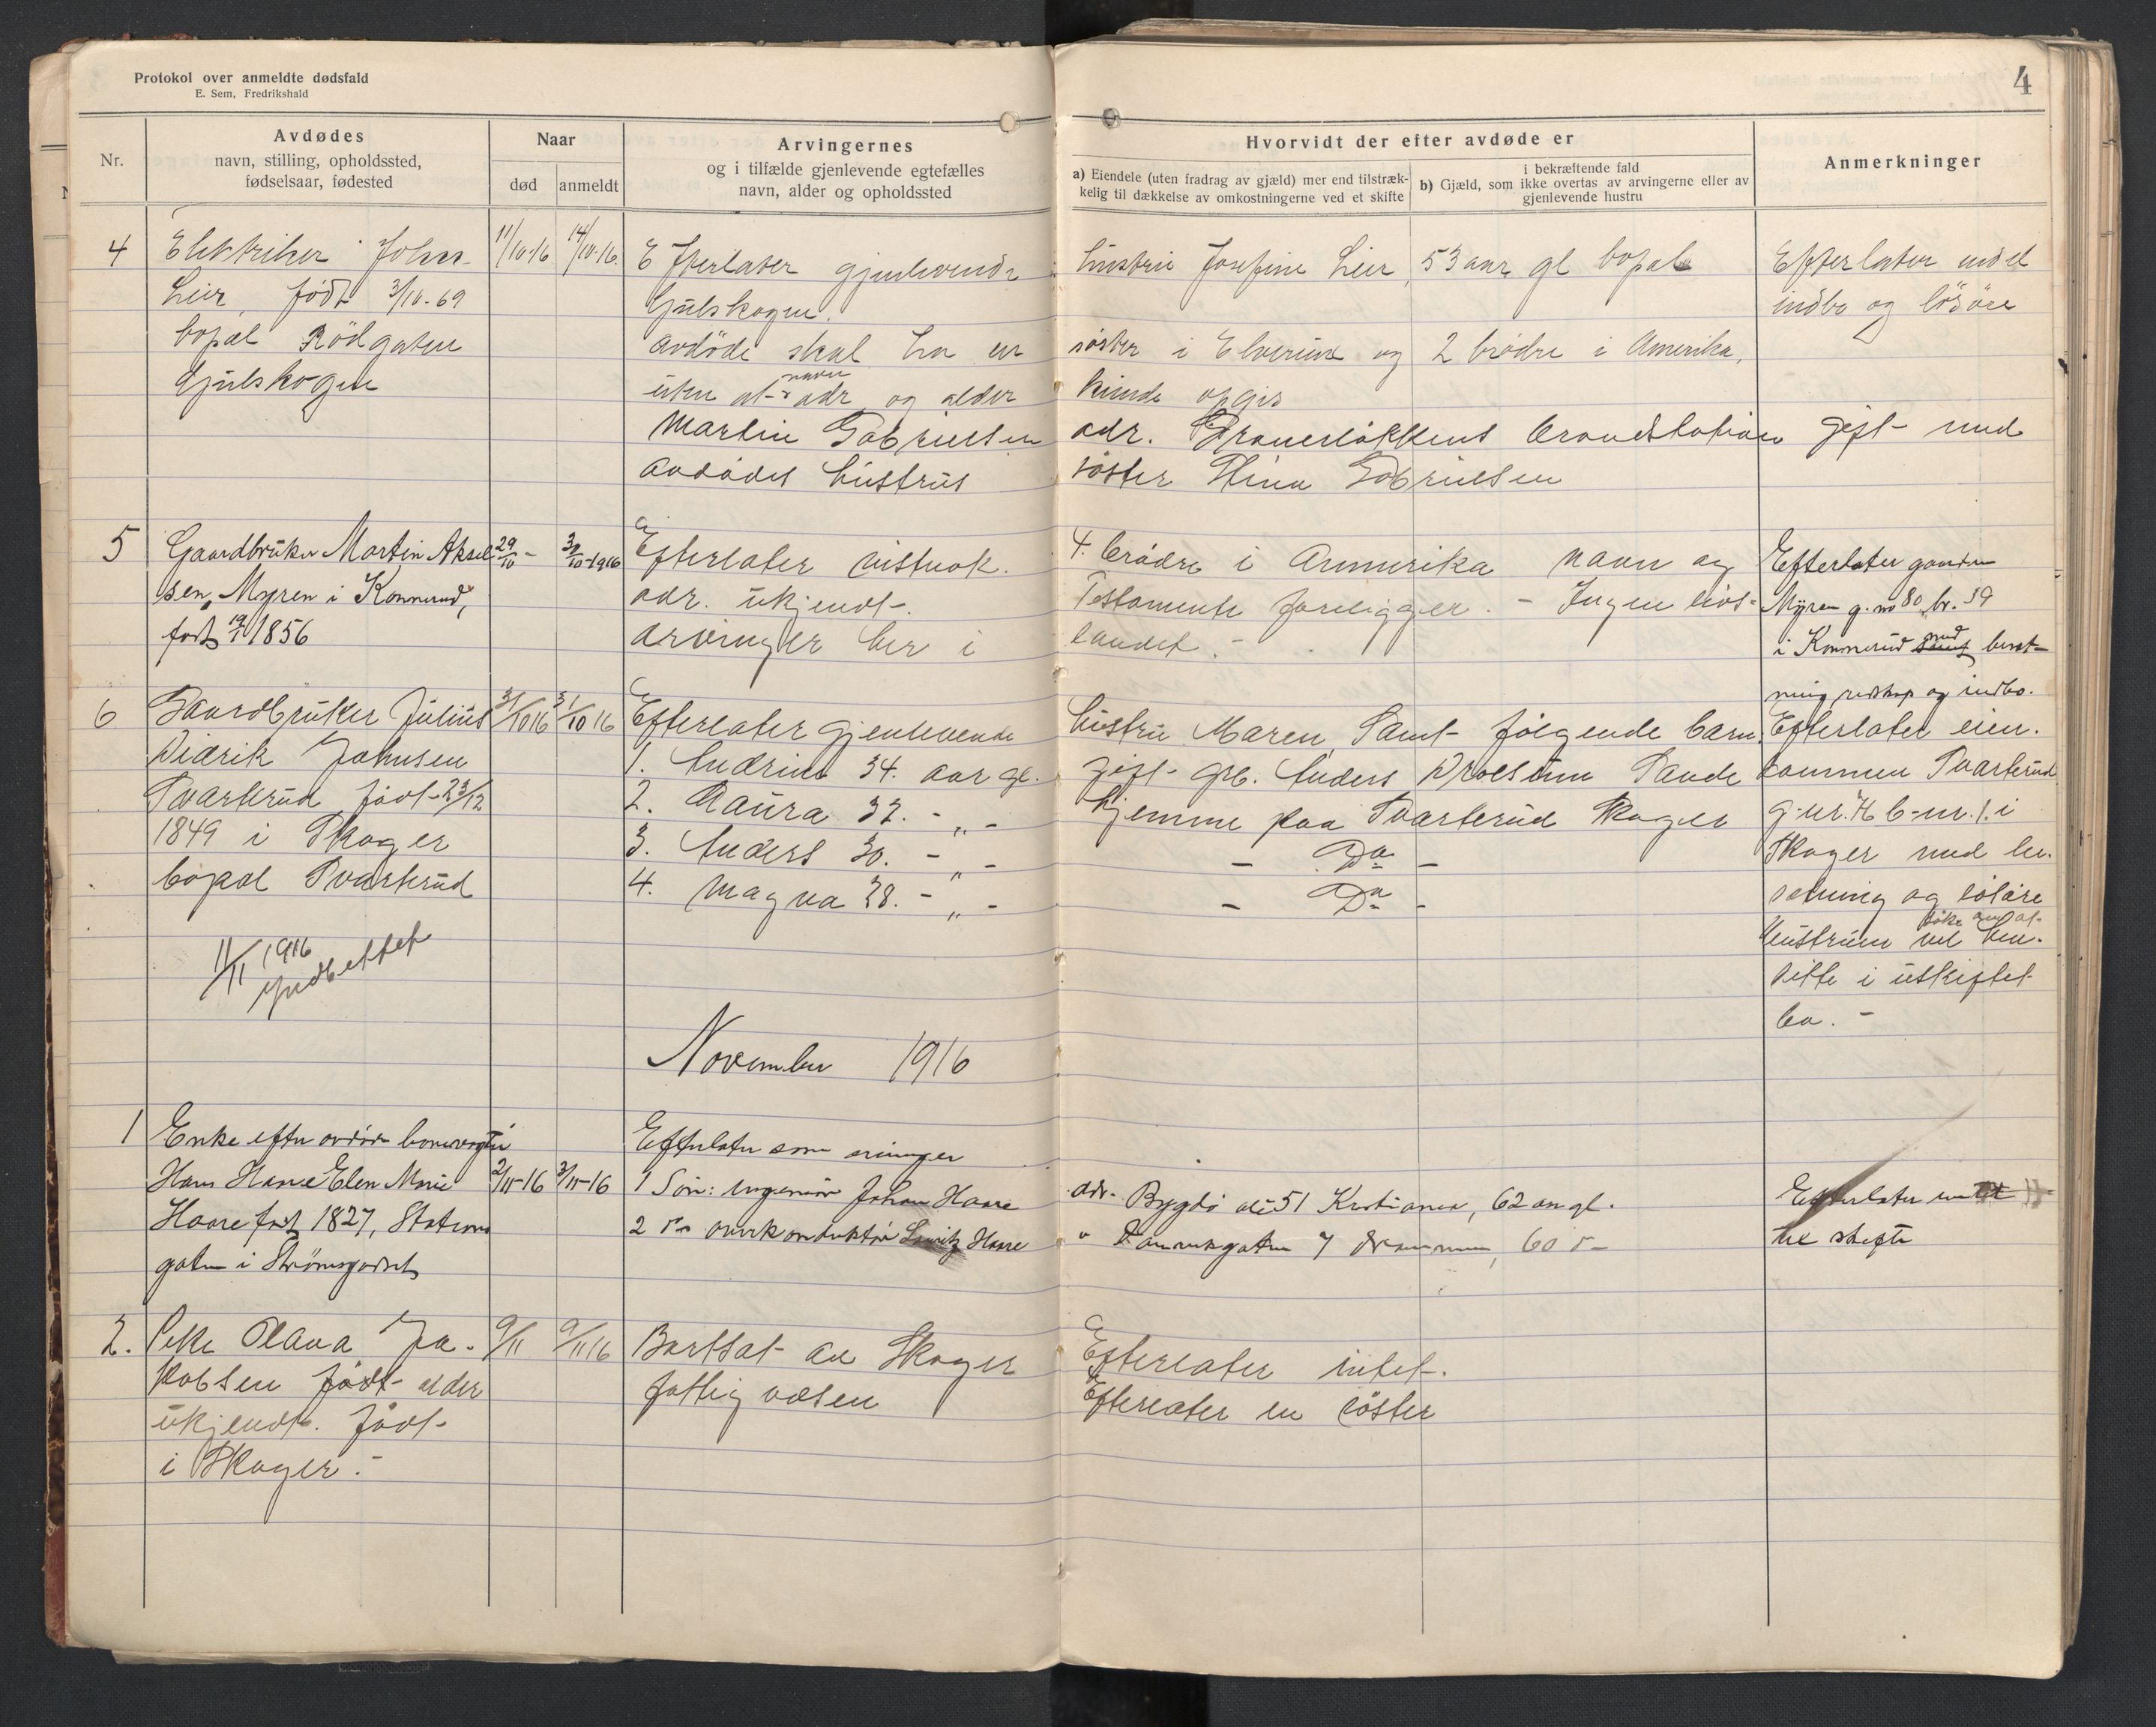 Protokol over anmeldte dødsfald
E. Sem, Fredrikshald
4
Nr.
Avdødes
navn, stilling, opholdssted,
fødselsaar, fødested
Naar
død
anmeldt
Arvingernes
og i tilfælde gjenlevende egtefælles
navn, alder og opholdssted
Hvorvidt der efter avdøde er
a) Eiendele (uten fradrag av gjæld) mer end tilstræk-
kelig til dækkelse av omkostningerne ved et skifte
i bekræftende fald
b) Gjæld, som ikke overtas av arvingerne eller av
gjenlevende hustru
Anmerkninger
4 Elektriker Johan 11/10-16 14/10-16. Efterlater gjenlevende hustru Josefine Leir, 53 aar gl bopal Efterlater endel
Leir, født 3/10-69 Gulskogen. indbo og løsøre
bopæl Rødgaten avdøde skal ha en søster i Elverum og 2 brødre i Amerika,
Gulskogen uten at navn adr og alder kunde opgis
Martin Gabrielsen adr. brandstation gift med
avdødes hustrus søster Stina Gabrielsen
5 Gaardbruker Martin Aksel 29/10 - 30/10-1916 Efterlater vistnok. 4. brødre i Ammerika navn og Efterlater gaarden
sen, Myren i Konnerud, adr. ukjendt. Testamente foreligger. - Ingen livs- Myren g. no 80 br. 59
født 19/1 1856 arvinger her i landet. - i Konnerud med besæt-
ning redskap og indbo.
6 Gaardbruker Julius 31/10 16 31/10 16 Efterlater gjenlevende hustru Maren Samt følgende barn. Efterlater eien.
Didrik Johnsen 1. Andrine 34. aar gl. gift grb. Anders Sande dommen Svarterud
Svarterud født 23/12 2. Laura 32. - „ - hjemme paa Svarterud Skoger g-nr. b-nr. 1. i
1849 i Skoger 3. Anders 30. - „ - - Do - Skoger med be.
bopæl Svarterud 4. Magna 28. - „ - - Do - sætning og løsøre
Hustruen vil søke om at hen.
11/11 1916 sitte i uskiftet
Indberettet bo. -
November 1916
1 Enke efter avdøde banevogter Efterlater som arvinger
Hans Haare Elen Marie 2/11-16 3/11-16 1 Søn: Ingeniør Johan Haare adr. Bygdø alé 51 Kristiania, 62 aar gl. Efterlater intet
Haare født 1827, Stations 2 do overkonduktør Lauritz Haare " Danmarksgaten 7 Drammen, 60 do til skifte
gaten i Strømsgodset
2. Pike Olava Ja- 9/11 9/11 16 Bortsat av Skoger Efterlater intet.
kobsen født alder fattigvæsen Efterlater en søster
ukjendt. født
i Skoger. -